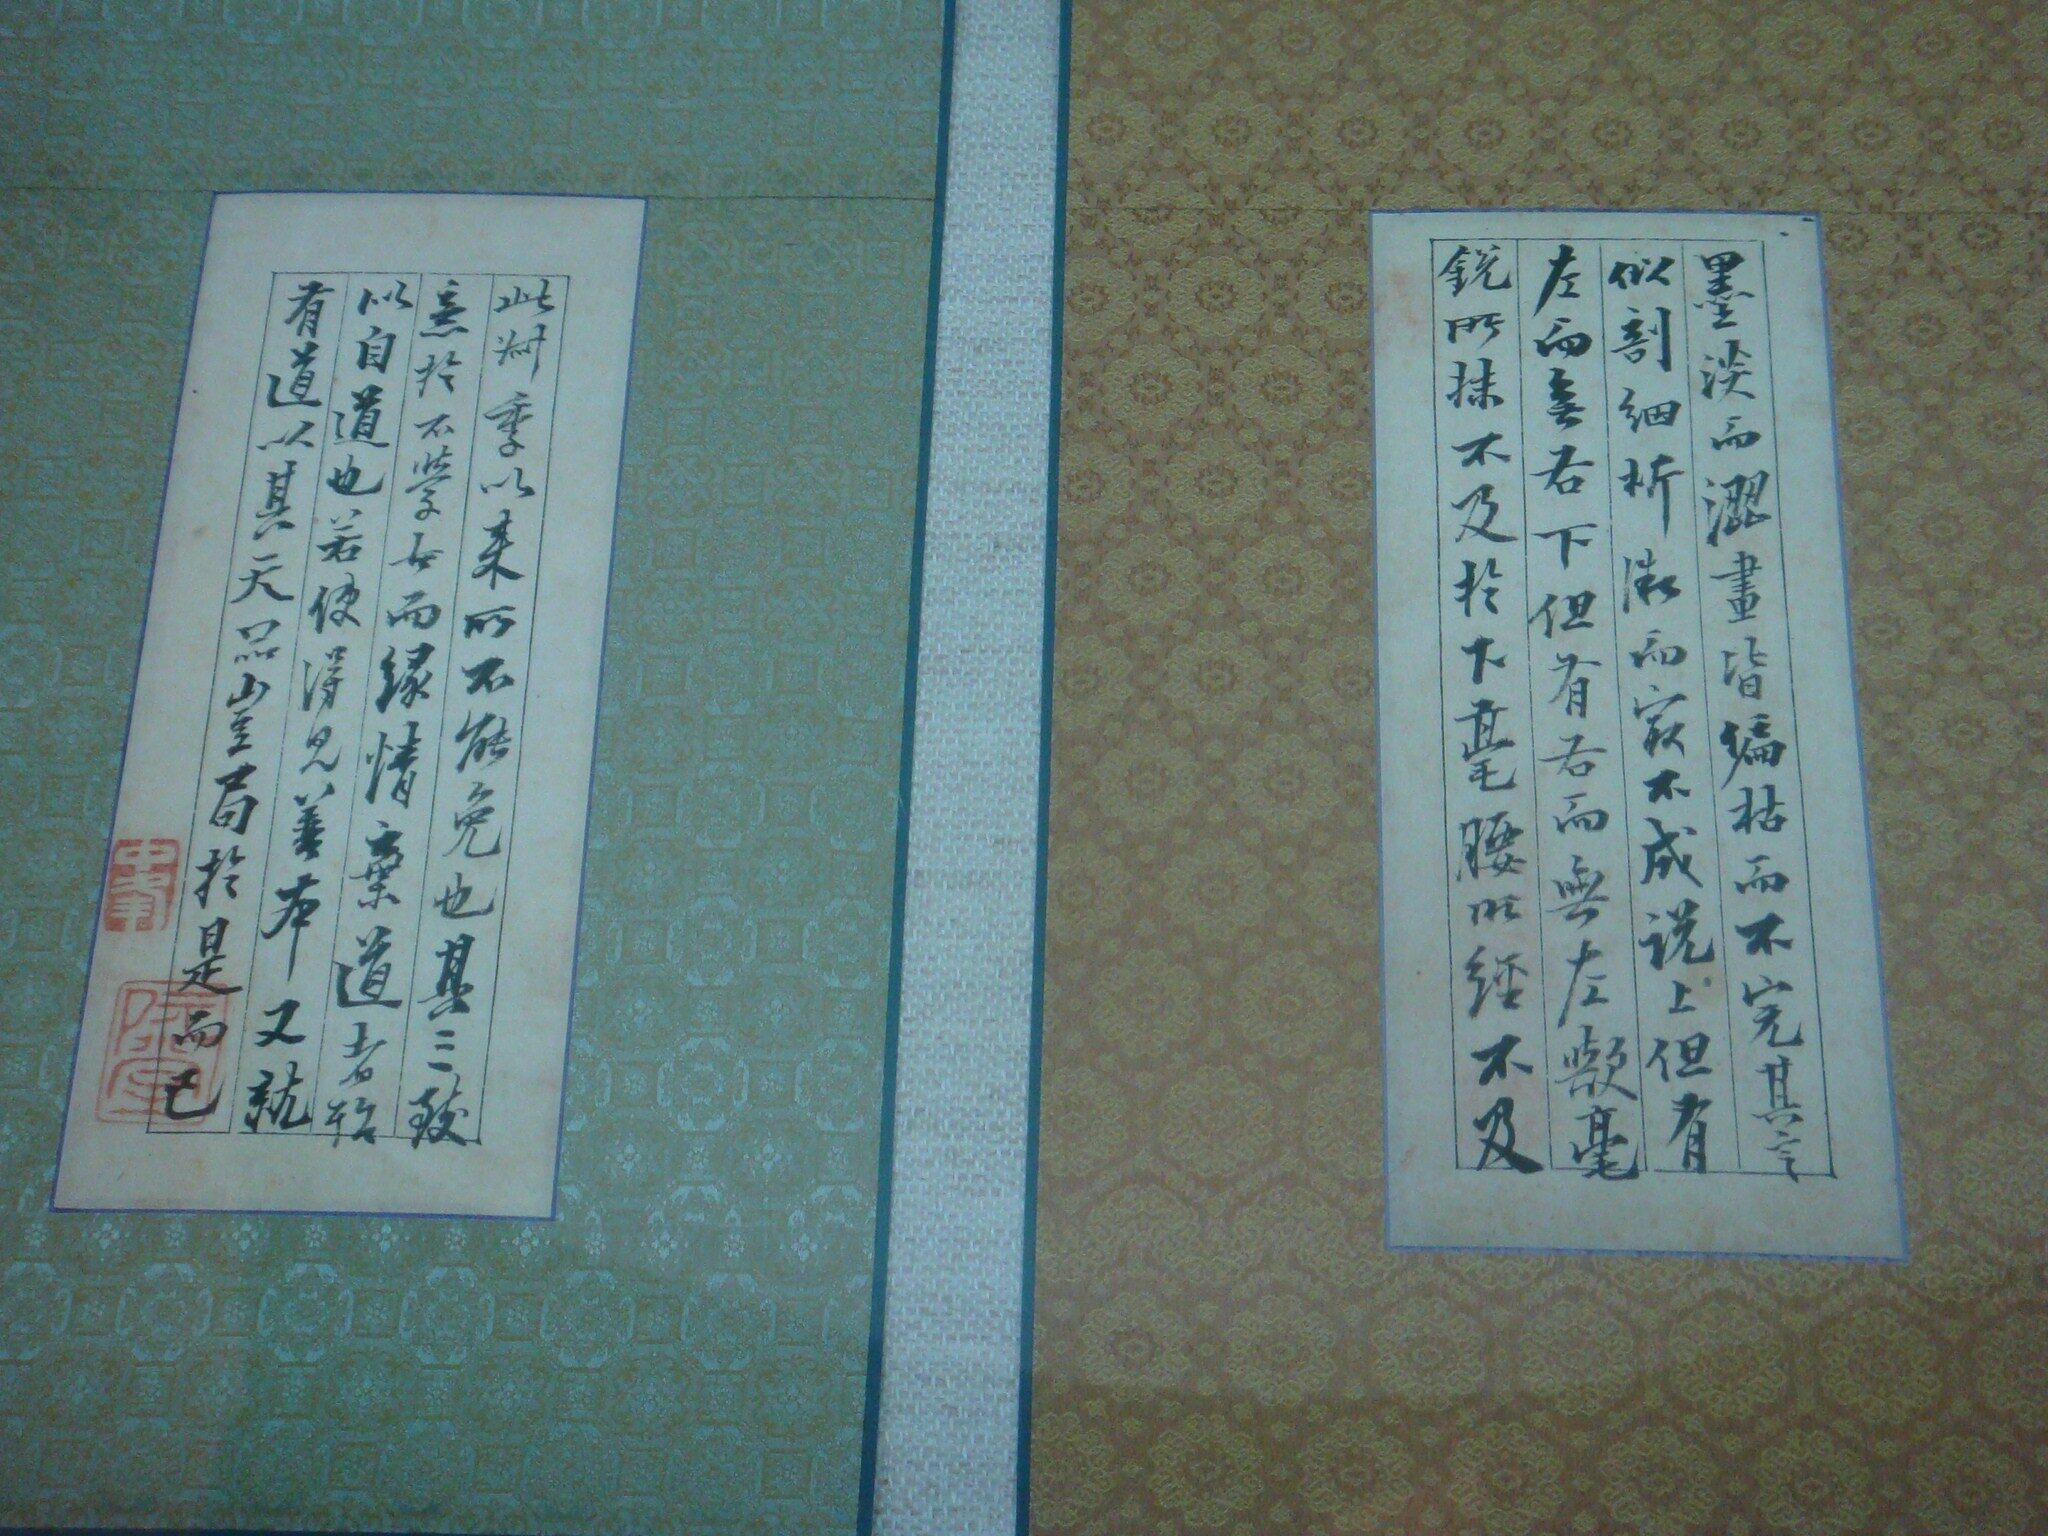 墨淡而澀畫皆偏枯而不完其言
似剖細析微而寂不成說上但有
左而無右下但有右而無左顛毫
銳所抹不及於下毫腰所經不及
此州季以來所不能免也其三致
意於不學古而緣情棄道者殆
以自道也若使得見善本又就
有道以其天品豈局於是而已